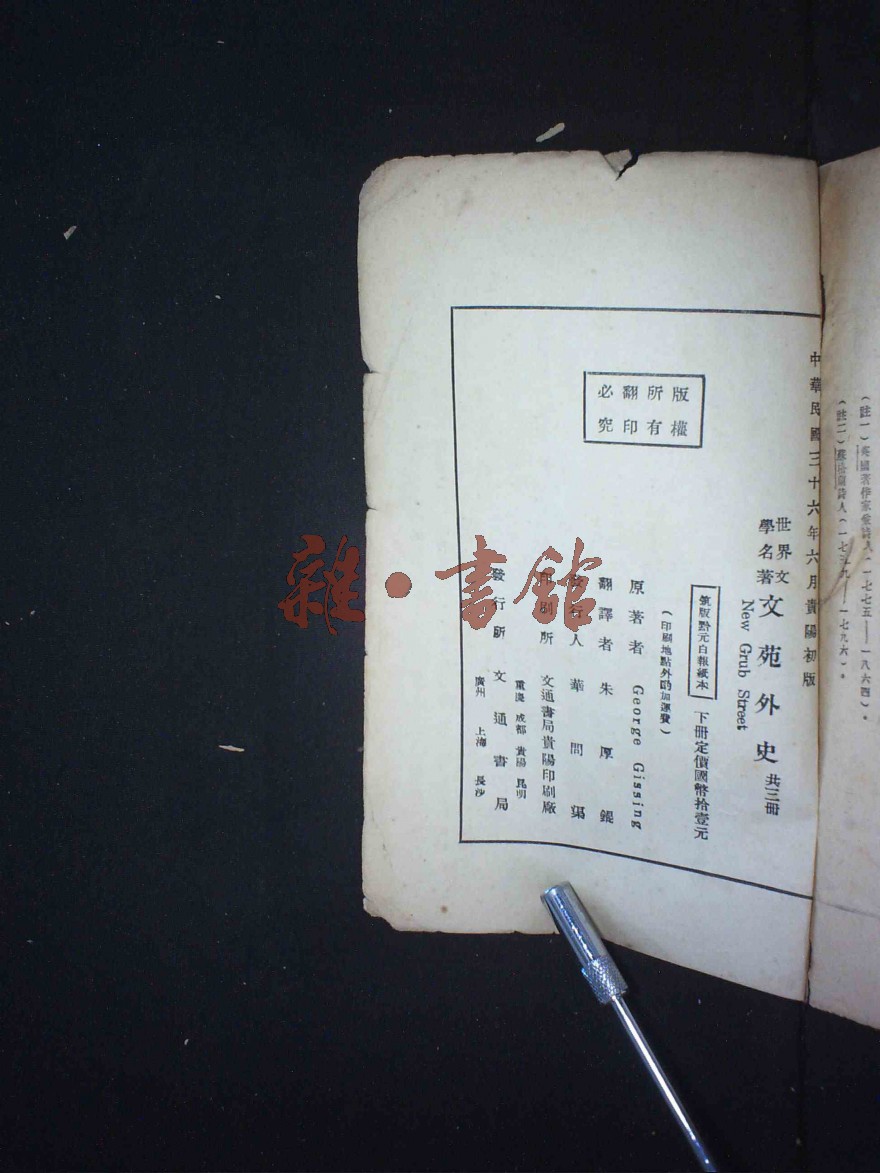 (註一)英國著作家兼詩人(一七七五——一八六四)。
(註二)蘇格蘭詩人(一七五九——一七九六)。
中華民國三十六年六月貴陽初版
世界文學名著 文苑外史 共三冊
New Grub Street
筑版黔元白報紙本 下冊定價國幣拾壹元
(印刷地點外酌加運費)
原著者 George Gissing
翻譯者 朱厚錕
發行人 華問渠
印刷所 文通書局貴陽印刷廠
重慶 成都 貴陽 昆明
發行所 文通書局
廣州 上海 長沙
版權
所有
翻印
必究
雜·書館